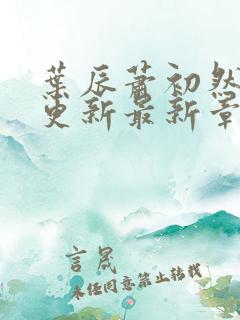 葉辰蕭初然
更新最新章
言晟
未经同意禁止转载